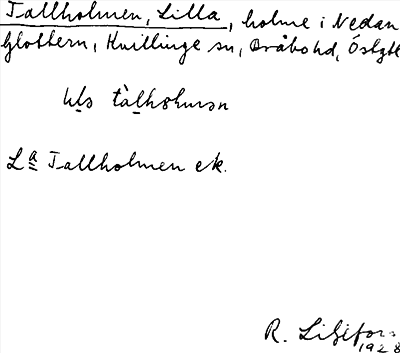 Tallholmen, Lilla, holme i Nedan
Glottern, Kvillinge sn, Bråbo hd, Östgtl
La Tallholmen ek.
R. Liljefors
1928